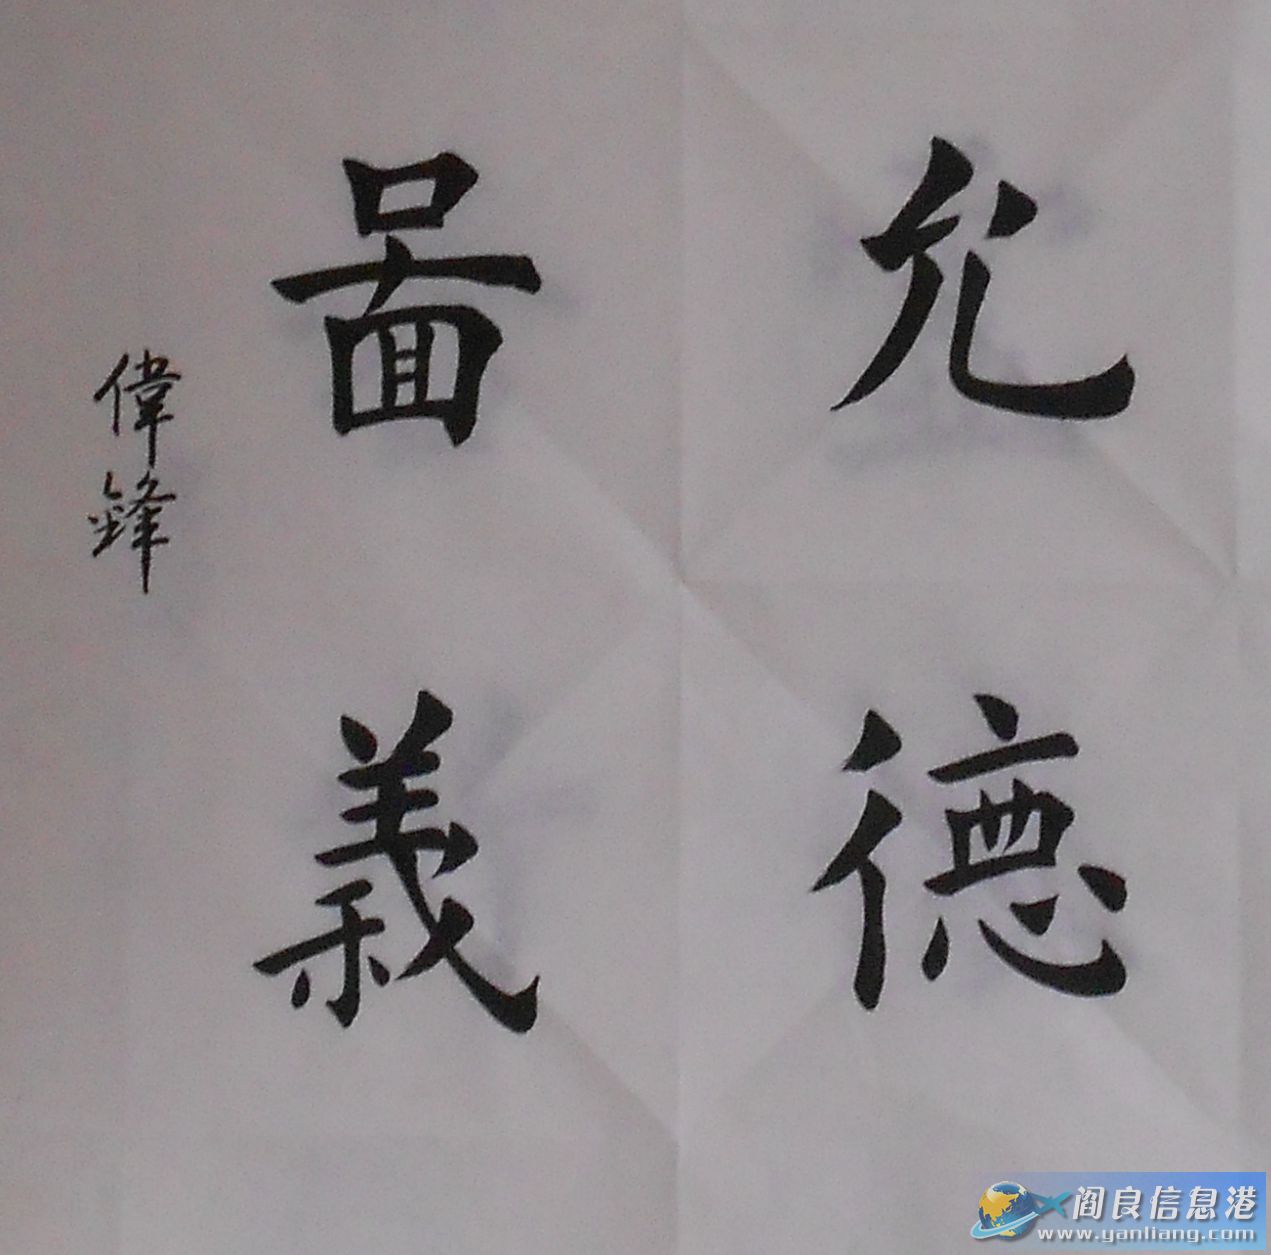 允德
啚義
偉鋒
阎良信息港
www.yanliang.com